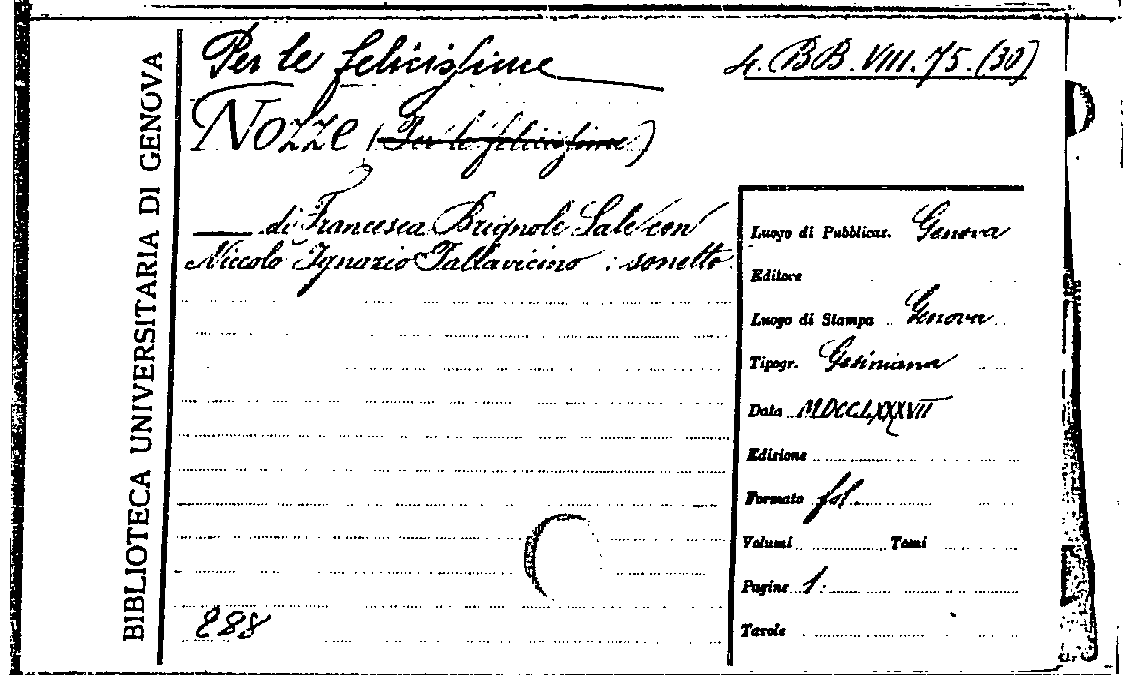 BIBLIOTECA UNIVERSITARIA DI GENOVA
Per le felicissime
4. BB. VIII. 75. (30)
Nozze (Per le felicissime)
di Francesca Brignole Sale con
Niccolò Ignazio Pallavicino : sonetto
Luogo di Pubblicaz. Genova
Editore
Luogo di Stampa Genova
Tipogr. Gesiniana
Data MDCCLXXXVII
Edizione
Formato fol.
Volumi Tomi
Pagine 1.
Tavole
288